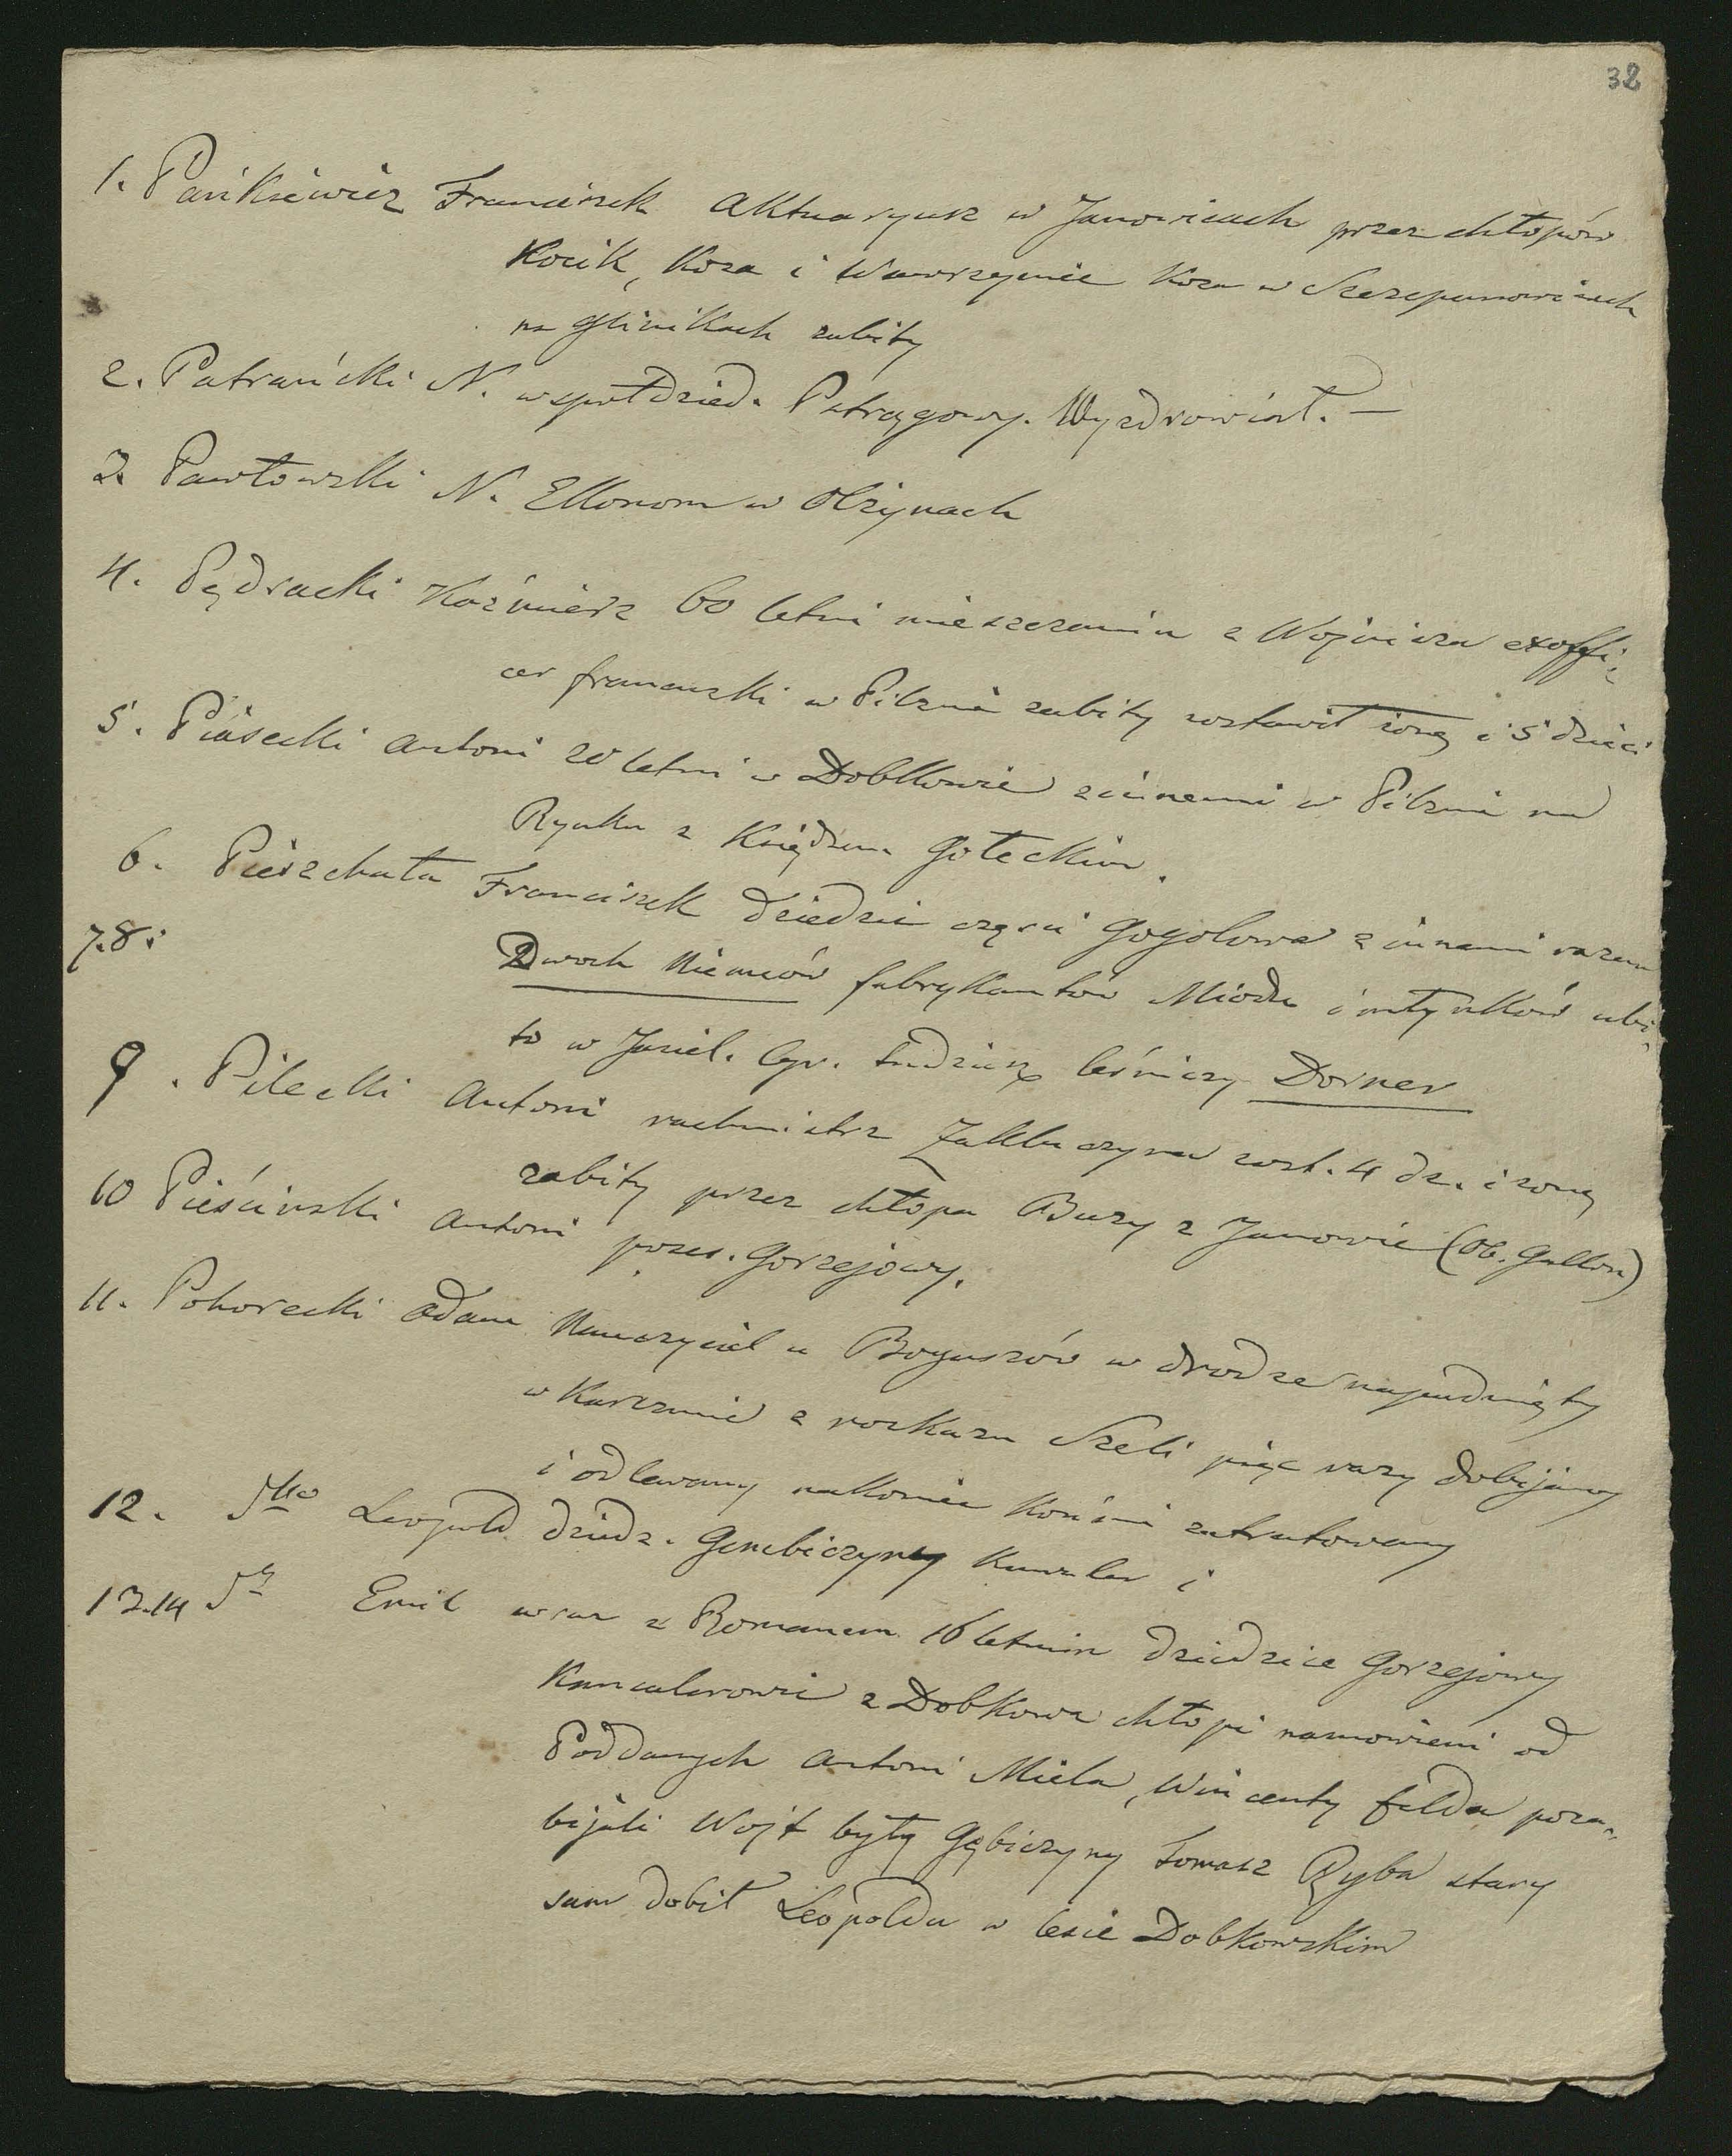 32
1. Pańkiewicz Franciszek Aktuaryusz w Janowicach przez chłopów
Kocik, Koza i Wawrzyniec Koza w Szczepanowicach
na Glinikach zabity
2. Patrański N. współdzied. Patrzygowy. Wyzdrowiał. —
3. Pawłowski N. Ekonom w Olszynach
4. Pędracki Kaźmierz 60 letni mieszczanin z Wojnicza exoffi-
cer francuzki w Pilznie zabity zostawił żonę i 5 dzieci
5. Piasecki Antoni 20 letni w Dobkowie z innemi w Pilznie na
Rynku z Księdzem Gołeckim.
6. Pierzchała Franciszek dziedzic części Gogolowa z innemi razem
7.8. Dwoch Niemców fabrykantów Miodu i młynków ubi-
to w Jasiel. Cyr. tudzież leśniczy Dorner
9. Pilecki Antoni rachmistrz Zakluczyna zost. 4 dz. i żonę
zabity przez chłopa Buzy z Janowic (Ob. Gallon)
10 Pieściński Antoni poses. Gorzejowy.
11. Pohorecki Adam Nauczyciel u Boguszów w drodze napadnięty
w Karczmie z rozkazu Szeli pięć razy dobijany
i odlewany nakoniec Końmi zatratowany
12. dtto Leopold dziedz. Gembiczyny Kanzler i
13.14 dt Emil wraz z Romanem 16 letnim dziedzice Gorzejowy
Kancalerowie z Dobkowa chłopi namowieni od
Poddanych Antoni Miela, Wincenty felda poza-
bijali Wojt były Gębiczyny Tomasz Ryba stary
sam dobił Leopolda w lesie Dobkowskim